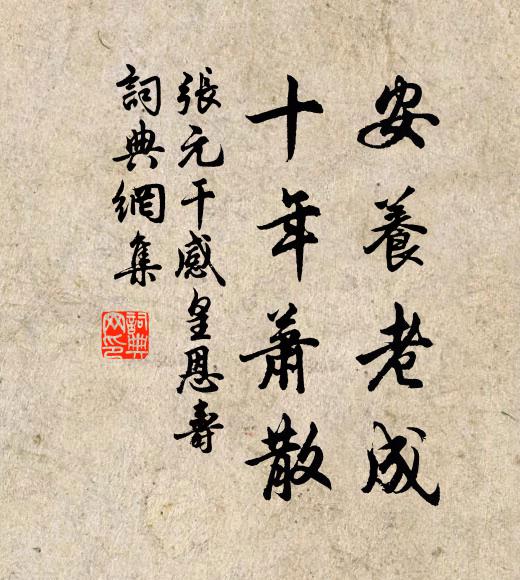 安養老成
十年蕭散
張元干感皇恩壽
詞典網集
詞典網印